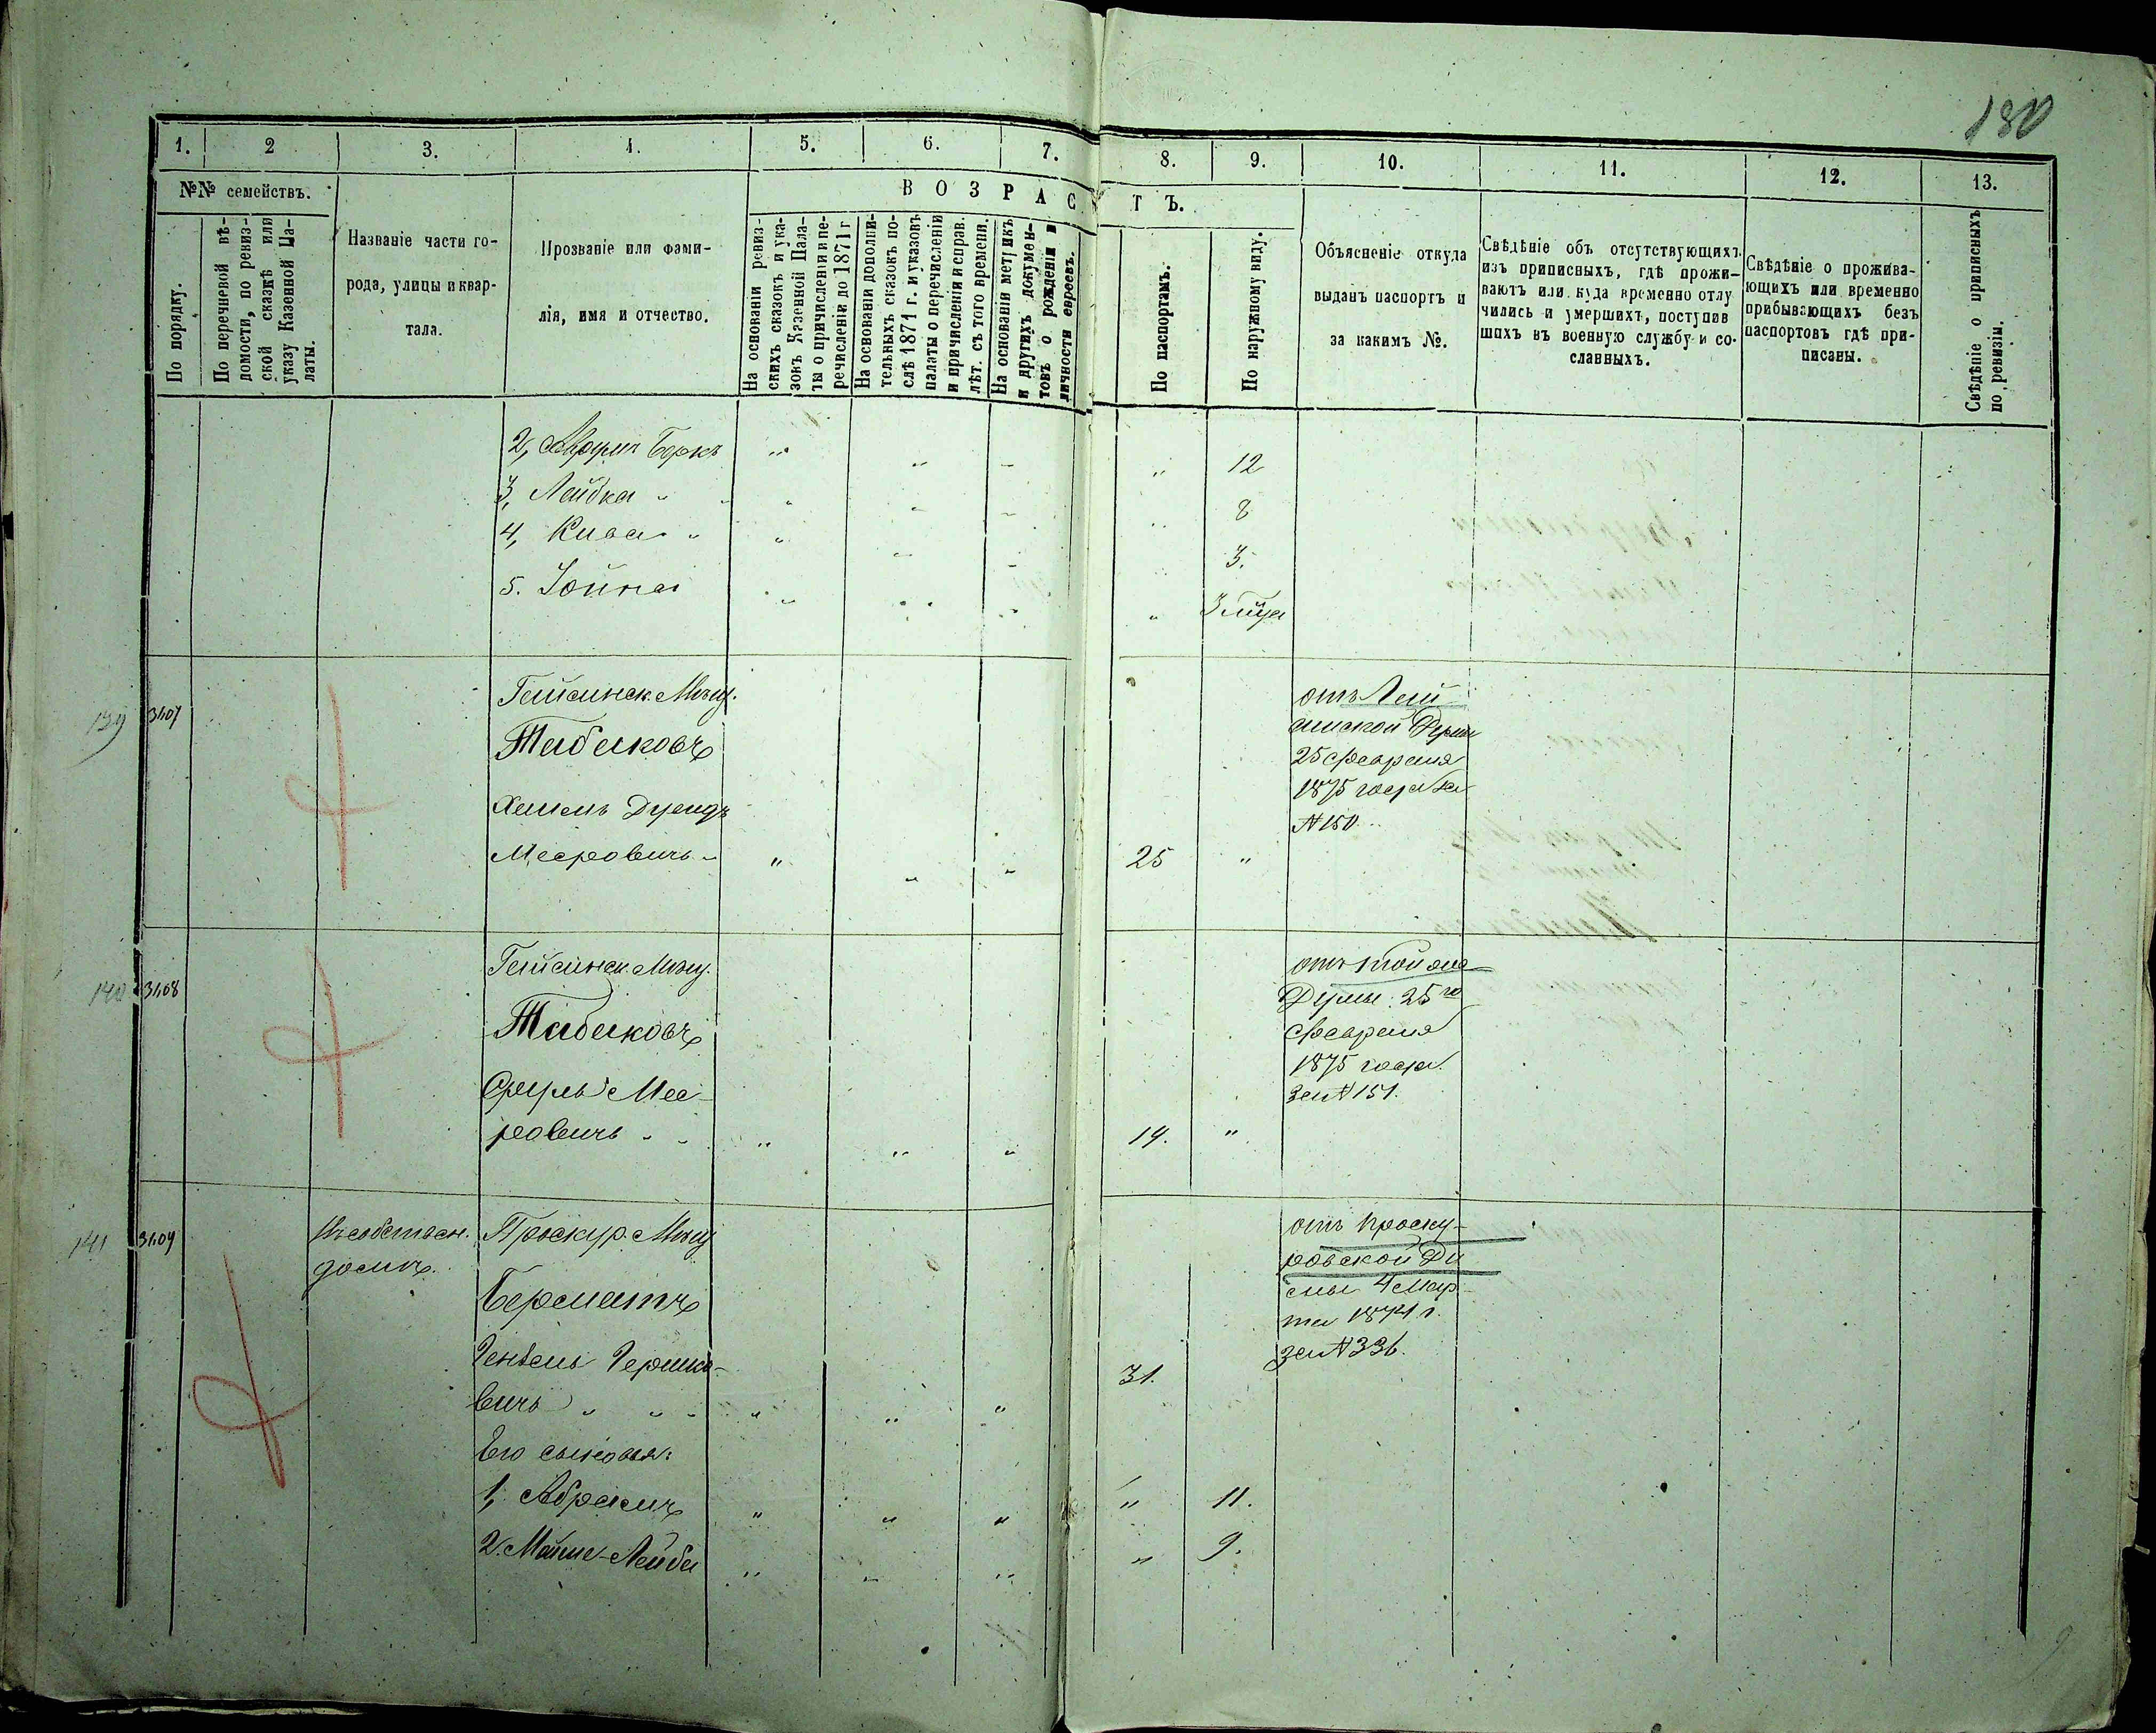 180
1. 2 3. 4. 5. 6. 7. 8. 9. 10. 11. 12. 13.
№№ семействъ.
По порядку.
По перечневой вѣ-
домости, по ревиз-
ской сказкѣ или
указу Казенной Па-
латы.
Названіе части го-
рода, улицы и квар-
тала.
Прозваніе или фами-
лія, имя и отчество.
ВОЗРАСТЪ.
На основаніи ревиз-
скихъ сказокъ и ука-
зокъ Казенной Пала-
ты о причисленіи и пе-
речисленіи до 1871 г
На основаніи дополни-
тельныхъ сказокъ по-
слѣ 1871 г. и указовъ
палаты о перечисленіи
и причисленіи и справ.
лѣт. съ того времени.
На основаніи метрикъ
и другихъ докумен-
товъ о рожденіи и
личности евреевъ.
По паспортамъ.
По наружному виду.
Объясненіе откуда
выданъ паспортъ и
за какимъ №.
Свѣдѣніе объ отсутствующихъ
изъ приписныхъ, гдѣ прожи-
ваютъ или куда временно отлу
чились и умершихъ, поступив
шихъ въ военную службу и со-
сланныхъ.
Свѣдѣніе о прожива-
ющихъ или временно
прибывающихъ безъ
паспортовъ гдѣ при-
писаны.
Свѣдѣніе о приписныхъ
по ревизіи.
2, Беркъ " " " " 12
3, Лейбка " " " " " 8
4, Кива " " " " " 3.
5. Іойна " " " " 3 мца
139 3107
Гайсинск. Мѣщ.
Табаковъ
Мееровичъ " " " " 25 "
25 февраля
1875 года за
№ 150.
140 3108
Гайсинск. Мѣщ.
Табаковъ
Сруль Мее-
ровичъ " " " " 19. "
отъ той же
Думы 25го
февраля
1875 года
за № 151.
141 3109
Въ собствен.
домѣ.
Проскур. Мѣщ
Берманъ
Гершко-
вичъ " " " 31.
отъ Проску-
ровской Ду
мы 4 Мар-
та 1874 г.
за № 336.
Его сыновья:
1, Абрамъ " " " " 11.
2. Мойше-Лейба " " " " 9.